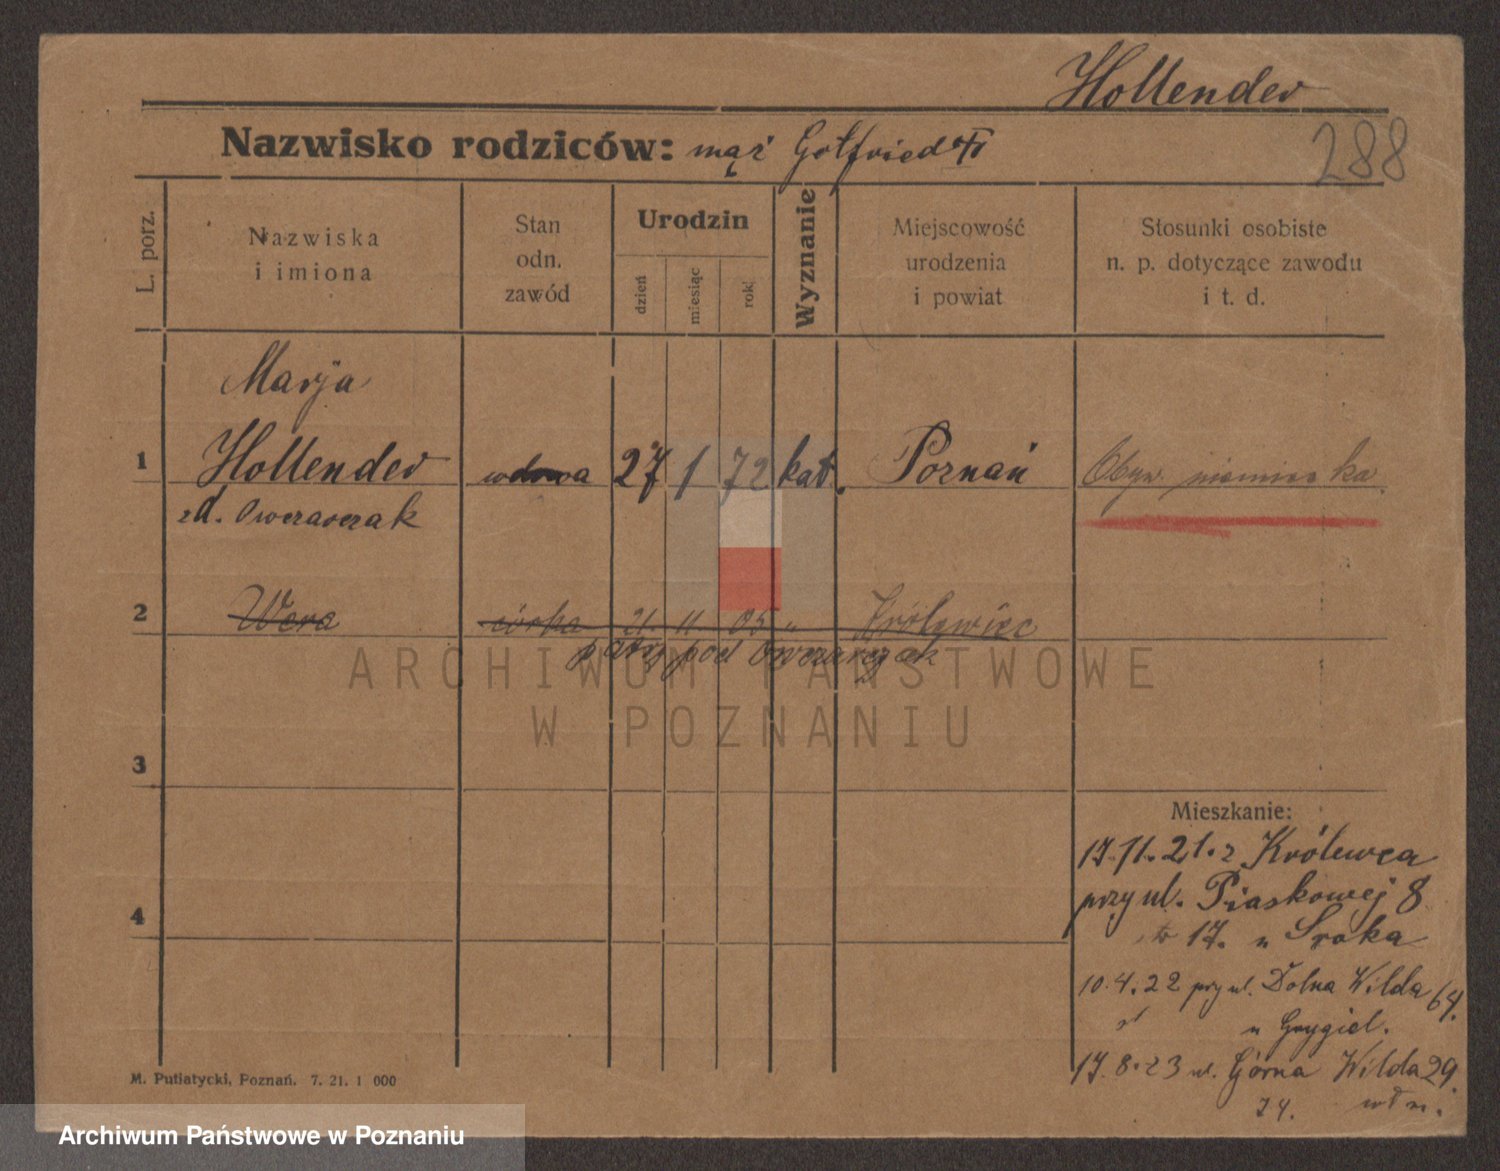 Hollender
Nazwisko rodziców: mąż Gotfried
288
L. porz.
Nazwiska
i imiona
Stan
odn.
zawód
Urodzin
dzień
miesiąc
rok
Wyznanie
Miejscowość
urodzenia
i powiat
Stosunki osobiste
n. p. dotyczące zawodu
i t. d.
Marja
1 Hollender wdowa 27 1 72 kat. Poznań Obyw. niemiecka
zd. Owczarczak
2 Wera córka 21. 11 05 " Królewiec
patrz pod Owczarczak
ARCHIWUM PAŃSTWOWE
W POZNANIU
3
Mieszkanie:
17.11.21. z Królewca
przy ul. Piaskowej 8
4
17. u Sroka
10.4.22 przy ul. Dolna Wilda 64.
u Grygiel.
17.8.23 ul. Górna Wilda 29.
74.
M. Putiatycki, Poznań. 7. 21. 1 000
Archiwum Państwowe w Poznaniu